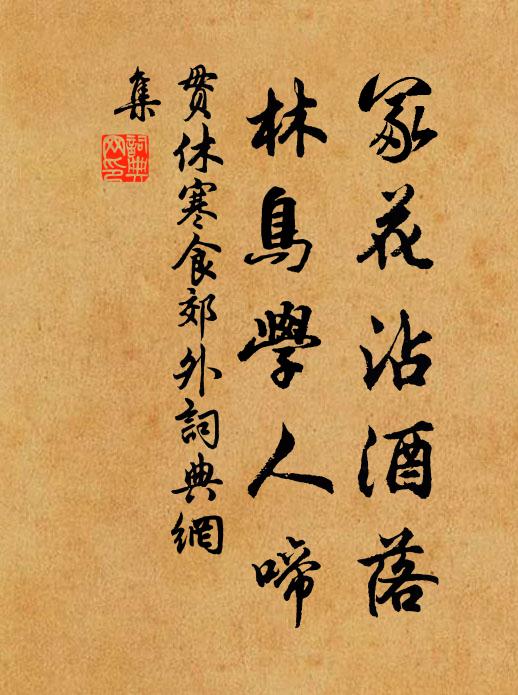 冢花沾酒落
林鳥學人啼
貫休寒食郊外詞典網
集
詞典
網印